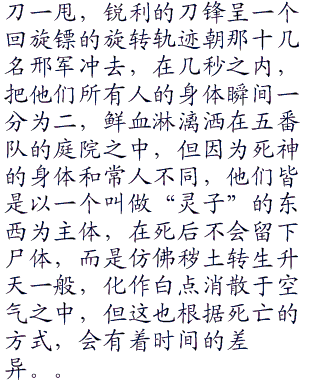 刀一甩，锐利的刀锋呈一个
回旋镖的旋转轨迹朝那十几
名邢军冲去，在几秒之内，
把他们所有人的身体瞬间一
分为二，鲜血淋漓洒在五番
队的庭院之中，但因为死神
的身体和常人不同，他们皆
是以一个叫做“灵子”的东
西为主体，在死后不会留下
尸体，而是仿佛秽土转生升
天一般，化作白点消散于空
气之中，但这也根据死亡的
方式，会有着时间的差
异。。